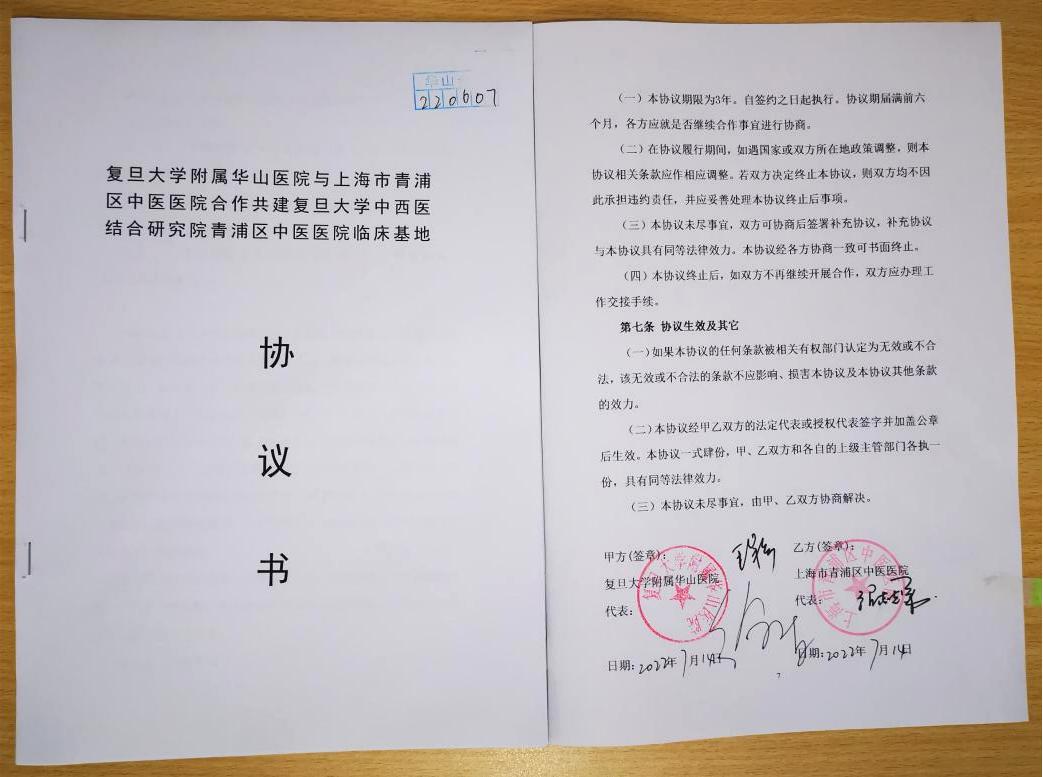 华山
220607
复旦大学附属华山医院与上海市青浦
区中医医院合作共建复旦大学中西医
结合研究院青浦区中医医院临床基地
协
议
书
（一）本协议期限为3年。自签约之日起执行。协议期届满前六
个月，各方应就是否继续合作事宜进行协商。
（二）在协议履行期间，如遇国家或双方所在地政策调整，则本
协议相关条款应作相应调整。若双方决定终止本协议，则双方均不因
此承担违约责任，并应妥善处理本协议终止后事项。
（三）本协议未尽事宜，双方可协商后签署补充协议，补充协议
与本协议具有同等法律效力。本协议经各方协商一致可书面终止。
（四）本协议终止后，如双方不再继续开展合作，双方应办理工
作交接手续。
第七条 协议生效及其它
（一）如果本协议的任何条款被相关有权部门认定为无效或不合
法，该无效或不合法的条款不应影响、损害本协议及本协议其他条款
的效力。
（二）本协议经甲乙双方的法定代表或授权代表签字并加盖公章
后生效。本协议一式肆份，甲、乙双方和各自的上级主管部门各执一
份，具有同等法律效力。
（三）本协议未尽事宜，由甲、乙双方协商解决。
甲方(签章)：
复旦大学附属华山医院
代表：
日期：2022年7月14日
复旦大学附属华山医院
乙方(签章)：
上海市青浦区中医医院
代表：
日期：2022年7月14日
上海市青浦区中医医院
7